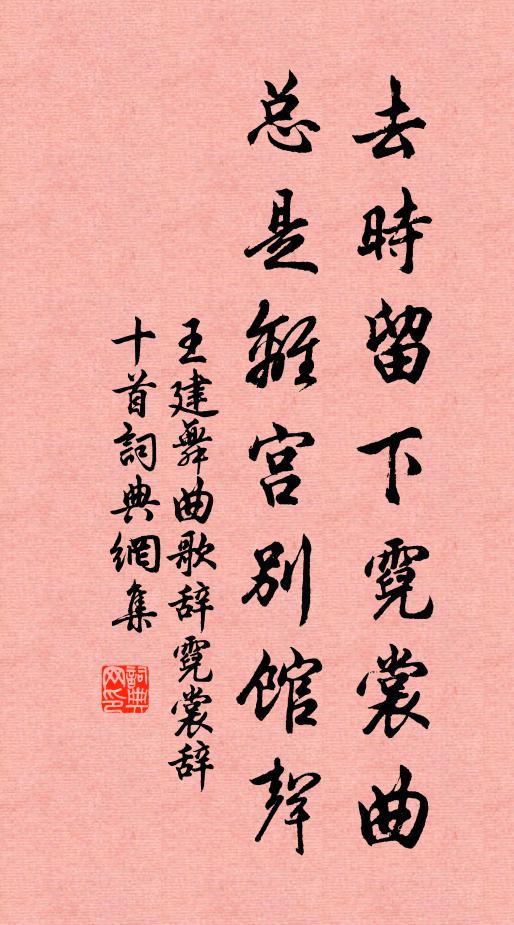 去時留下霓裳曲
总是離宫别館聲
王建舞曲歌辞霓裳辞
十首詞典網集
詞典网印